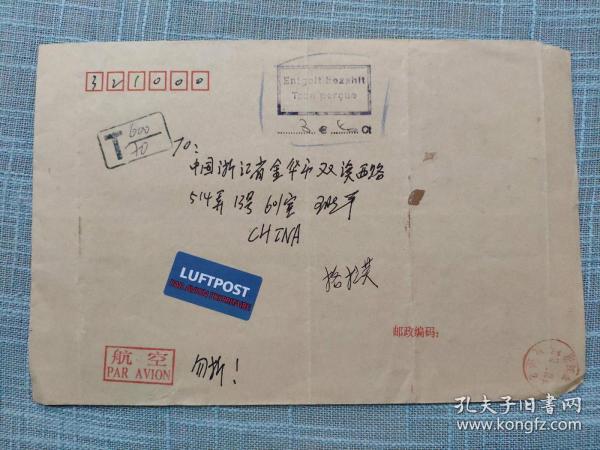 321000
Entgelt bezahlt
Taxe perçue
3 € 4 ct
T 600
70
To:
中国浙江省金华市双溪西路
514弄13号601室
CHINA
LUFTPOST
PAR AVION PRIORITAIRE
邮政编码:
航空
PAR AVION
勿折!
孔夫子旧书网
www.kongfz.com